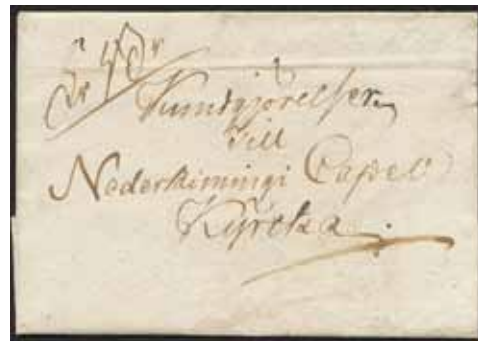 Kundgjörelser
Till
Nederkimingi Capell
Kyrcka